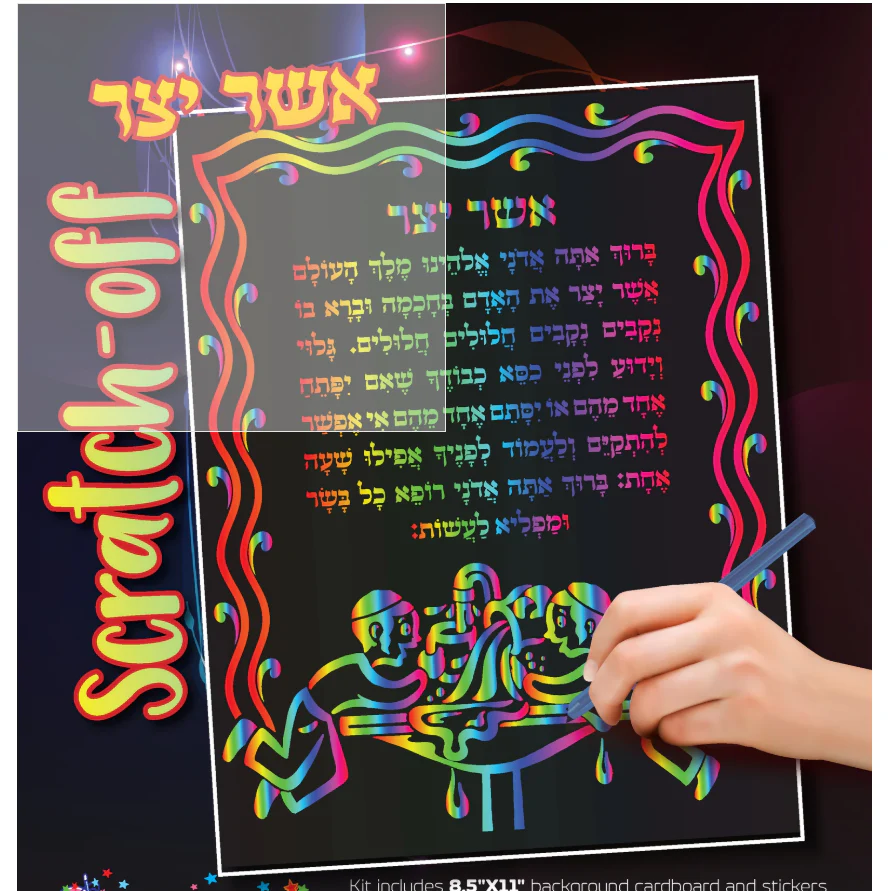 אשר יצר
Scratch-off
אשר יצר
בָּרוּךְ אַתָּה אֲדֹנָי אֱלֹהֵינוּ מֶלֶךְ הָעוֹלָם
אֲשֶׁר יָצַר אֶת הָאָדָם בְּחָכְמָה וּבָרָא בוֹ
נְקָבִים נְקָבִים חֲלוּלִים חֲלוּלִים. גָּלוּי
וְיָדוּעַ לִפְנֵי כִסֵּא כְבוֹדֶךָ שֶׁאִם יִפָּתֵחַ
אֶחָד מֵהֶם אוֹ יִסָּתֵם אֶחָד מֵהֶם אִי אֶפְשַׁר
לְהִתְקַיֵּם וְלַעֲמוֹד לְפָנֶיךָ אֲפִילוּ שָׁעָה
אֶחָת: בָּרוּךְ אַתָּה אֲדֹנָי רוֹפֵא כָל בָּשָׂר
וּמַפְלִיא לַעֲשׂוֹת:
Kit includes 8.5"X11" background cardboard and stickers